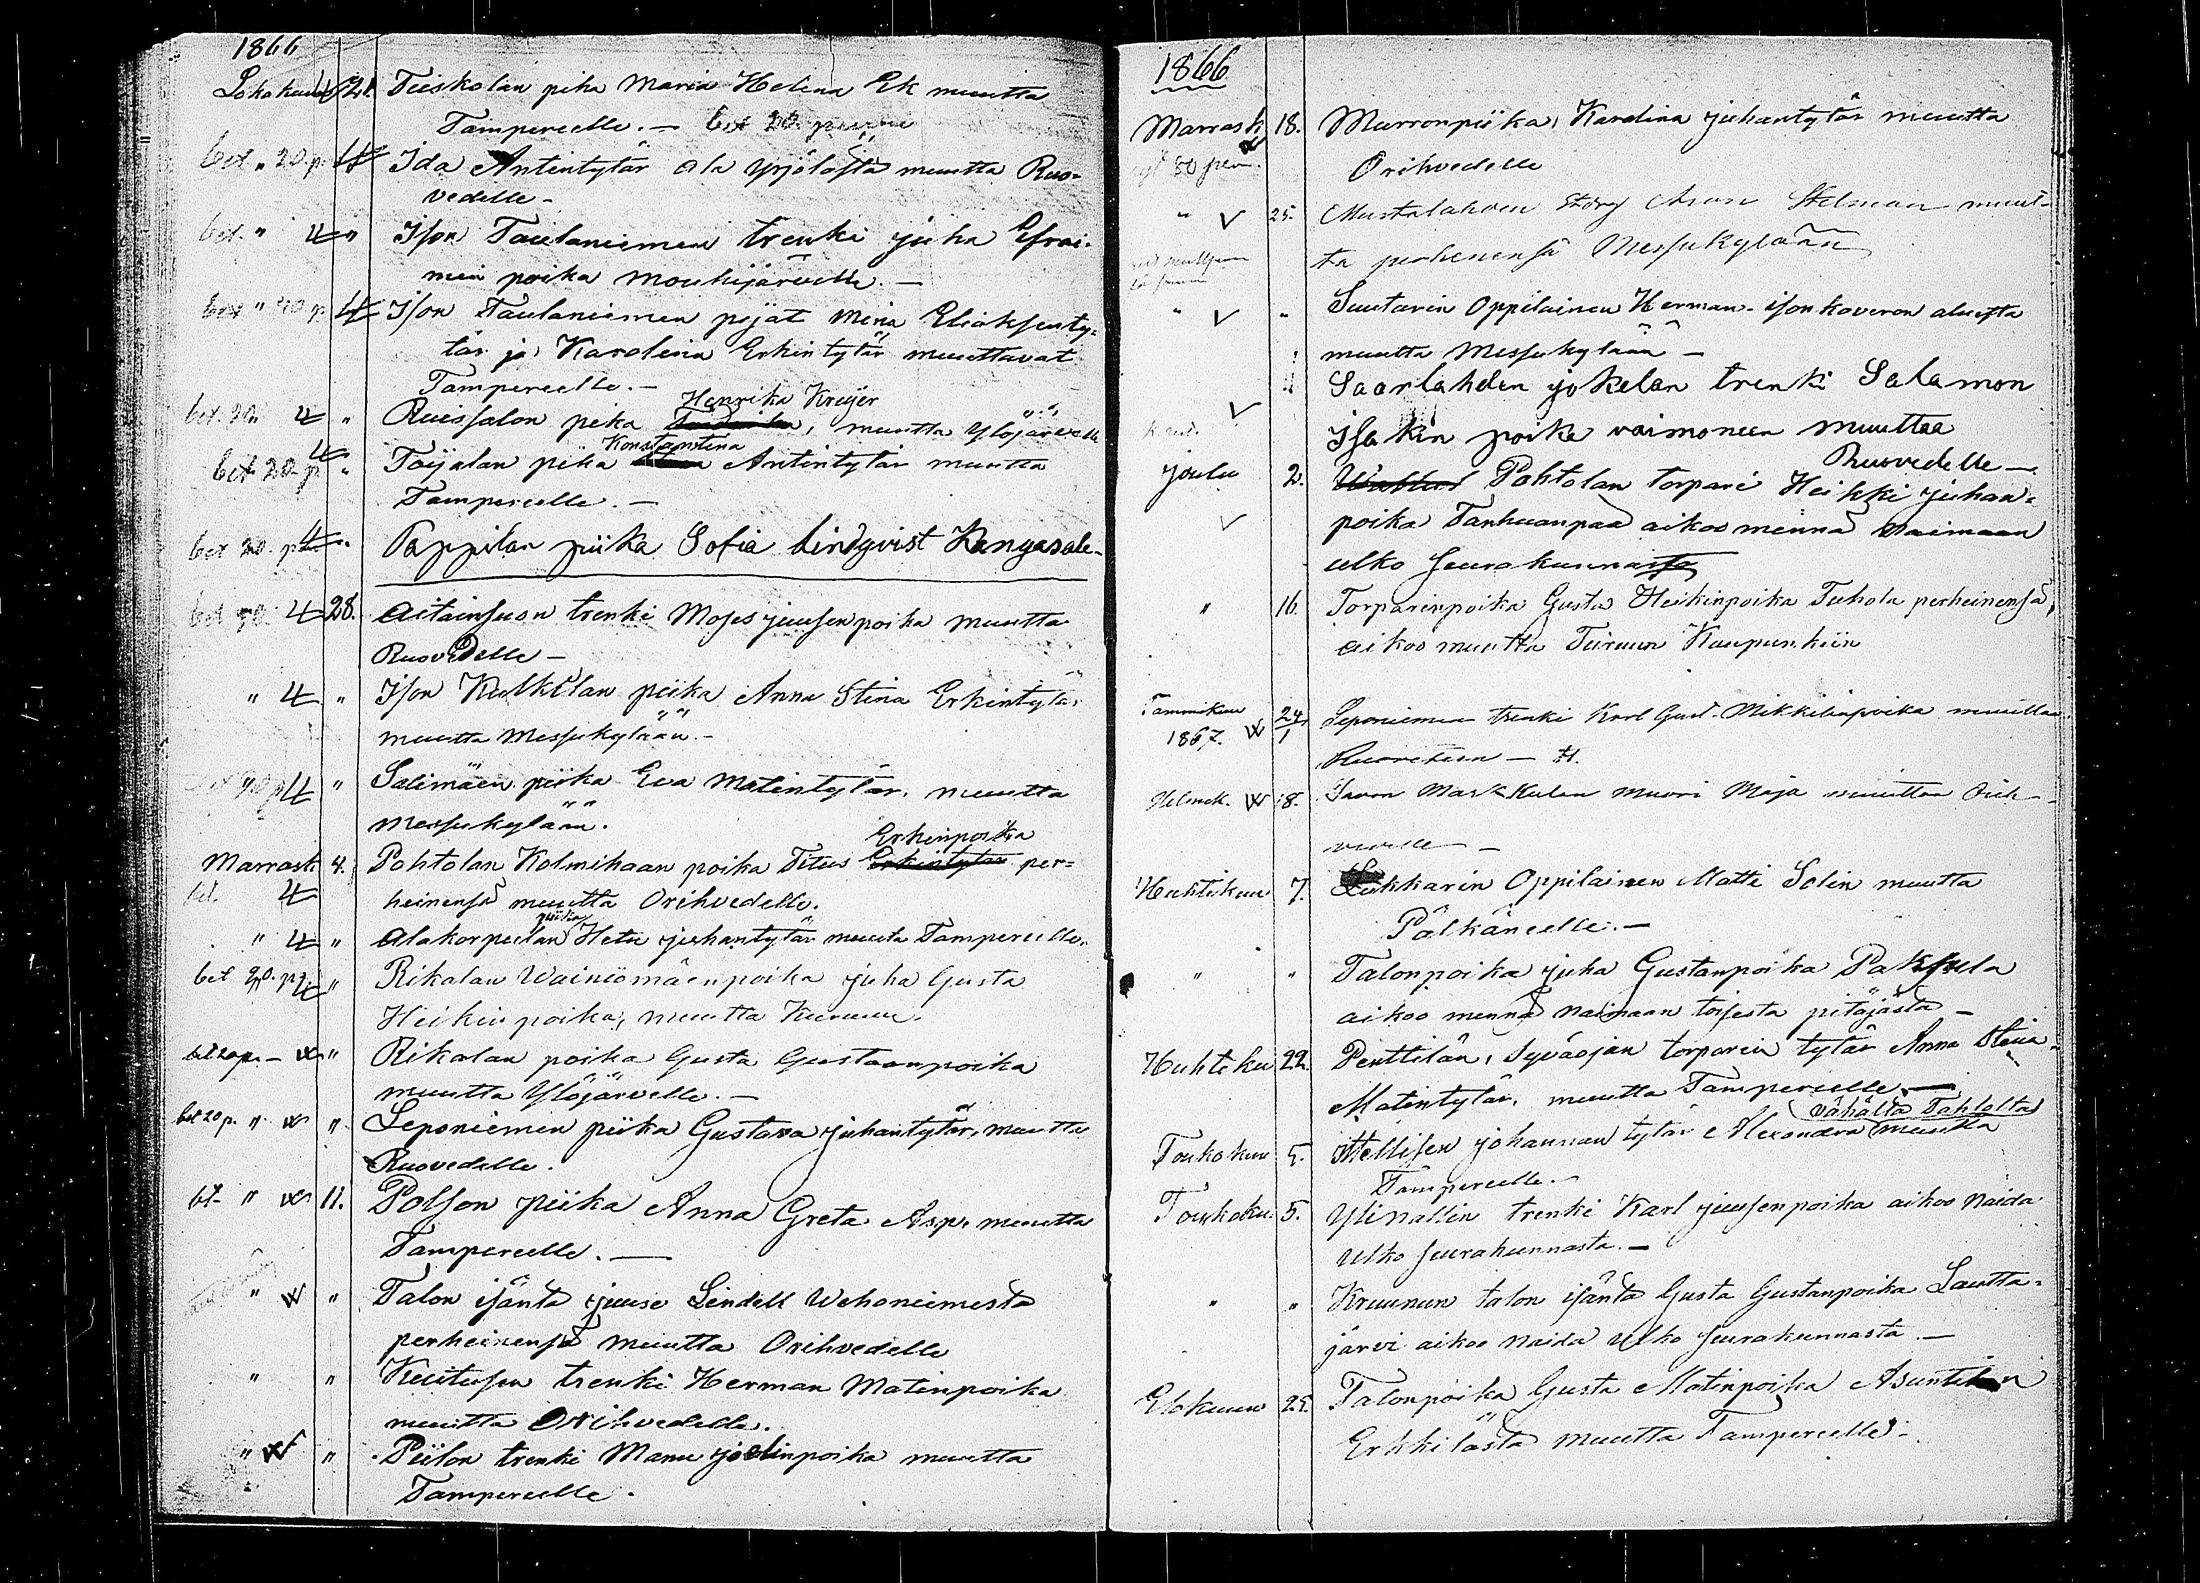 1866
Lokakuu 21. Teiskolan pika Maria Helena Ek muutta
Tampereelle. — bet 20 penni
bet " 20 p. Ida Antintytär ala Yrjölästä muutta Ruo-
vedelle —
bet. " " Ison Taulaniemen trenki juha Efrai-
min poika mouhijärvelle. —
bet " 40 p. Ison Taulaniemen pijat Mina Eliaksenty-
tär ja Karolina Erkintytär muuttavat
Tampereelle. —
Henrika Kreijer
bet. 20. " Ruissalon pika muutta Ylöjärvelle
Konstantina
bet 20 p. " Toijalan pika Antintytär muutta
Tampereelle. —
bet 20. p. " Pappilan piika Sofia Lindqvist Kangasale-
bet 28. Aitainsuon trenki Moses juusenpoika muutta
Ruovedelle —
" " Ison Kulkkilan piika Anna Stina Erkintytär
muutta Messukylään. —
" Salimäen piika Eva Matintytär, muutta
Messukylään.
Erkinpoika
Marrask. 4. Pohtolan Kolmihaan poika Titus Erkintytär per=
bet. heinensä muutta Orihvedelle.
piika
" " Alakorpulan Heta juhantytär muuta Tampereelle.
bet 20. p. " Rikalan Wainiomäen poika juha Gusta
Heikinpoika, muutta Kuruun.
bet 20 p. — " Rikalan poika Gusta Gustaanpoika
muutta Ylöjärvelle. —
bet 20 p. " " Leponiemen piika Gustava juhantytär, muutta
Ruovedelle.
bt. " 11. Polson piika Anna Greta Asp. muutta
Tampereelle. —
" " Talon isäntä juuse Lindell Wehoniemestä
perheinensä muutta Orihvedelle
" " Kuitusen trenki Herman Matinpoika
muutta Orihvedelle.
" " Piilon trenki Manu joelinpoika muutta
Tampereelle.
1866
Marrask 18. Murronpiika, Karolina juhantytär muutta
80 pen. Orihvedelle
" 25. Mustalahven Aron Stelman muut-
ta perhenensä Messukylään
" " Suutarin Oppilainen Herman ison koveron aluesta
muutta Messukylään —
Saarlahden jokelan trenki Salamon
Isakin poika vaimoneen muuttaa
Ruovedelle —
joulu 2. Pohtolan torpari Heikki juhan-
poika Tanhuanpää aikoo mennä naimaan
ulko seurakunnasta
" 16. Torparinpoika Gusta Heikinpoika Tuhola perheinensä,
aikoo muutta Turuun Kaupunkiin
Tammikuu 24/1 Leponiemen trenki Karl Gust. Mikkelinpoika muuttaa
1867. Ruoveteen —
Helmik. 18. Markkulan muori Maja muuttaa Orih-
vedelle —
Huhtikuu 7. Lukkarin Oppilainen Matti Solin muutta
Pälkäneelle. —
" " Talonpoika juha Gustanpoika Paksula
aikoo mennä naimaan toisesta pitäjästä —
Huhtiku 22. Penttilän, Syväojan torparin tytär Anna Stina
Matintytär, muutta Tampereelle —
vähältä Tahlolta
Toukokuu 5. Mellisen johannan tytär Alexandra muutta
Tampereelle. —
Toukoku. 5. Ylinallin trenki Karl juusenpoika aikoo naida
ulko seurakunnasta. —
" " Kruunun talon isäntä Gusta Gustanpoika Lautta-
järvi aikoo naida ulko seurakunnasta. —
Elokuun 25. Talonpoika Gusta Matinpoika Asuntilan
Erkkilästä muutta Tampereelle —